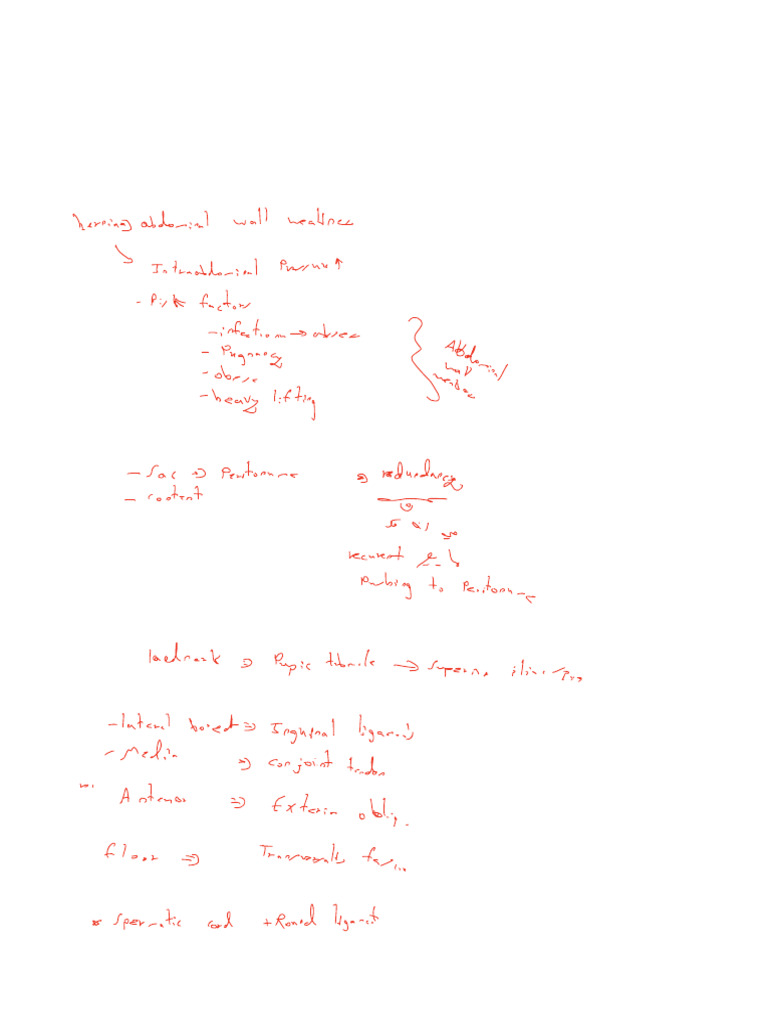 hernia → abdominal wall weaknes
Intraabdominal Pressure ↑
- Risk factors
- infection → obsec
- Pregnancy
- obese
- heavy lifting
Abdominal
wall
- Sac → Peritonume
- content
→ redundancy
recurent
Pushing to Peritonume
landmark → Pupic tubercle → Superna iliac
- lateral bored ⇒ Inguinal ligament
- Media ⇒ conjoint tendon
Anterior ⇒ Extern obliq.
floor ⇒ Transversalis fascia
* Spermatic cord + Round ligament